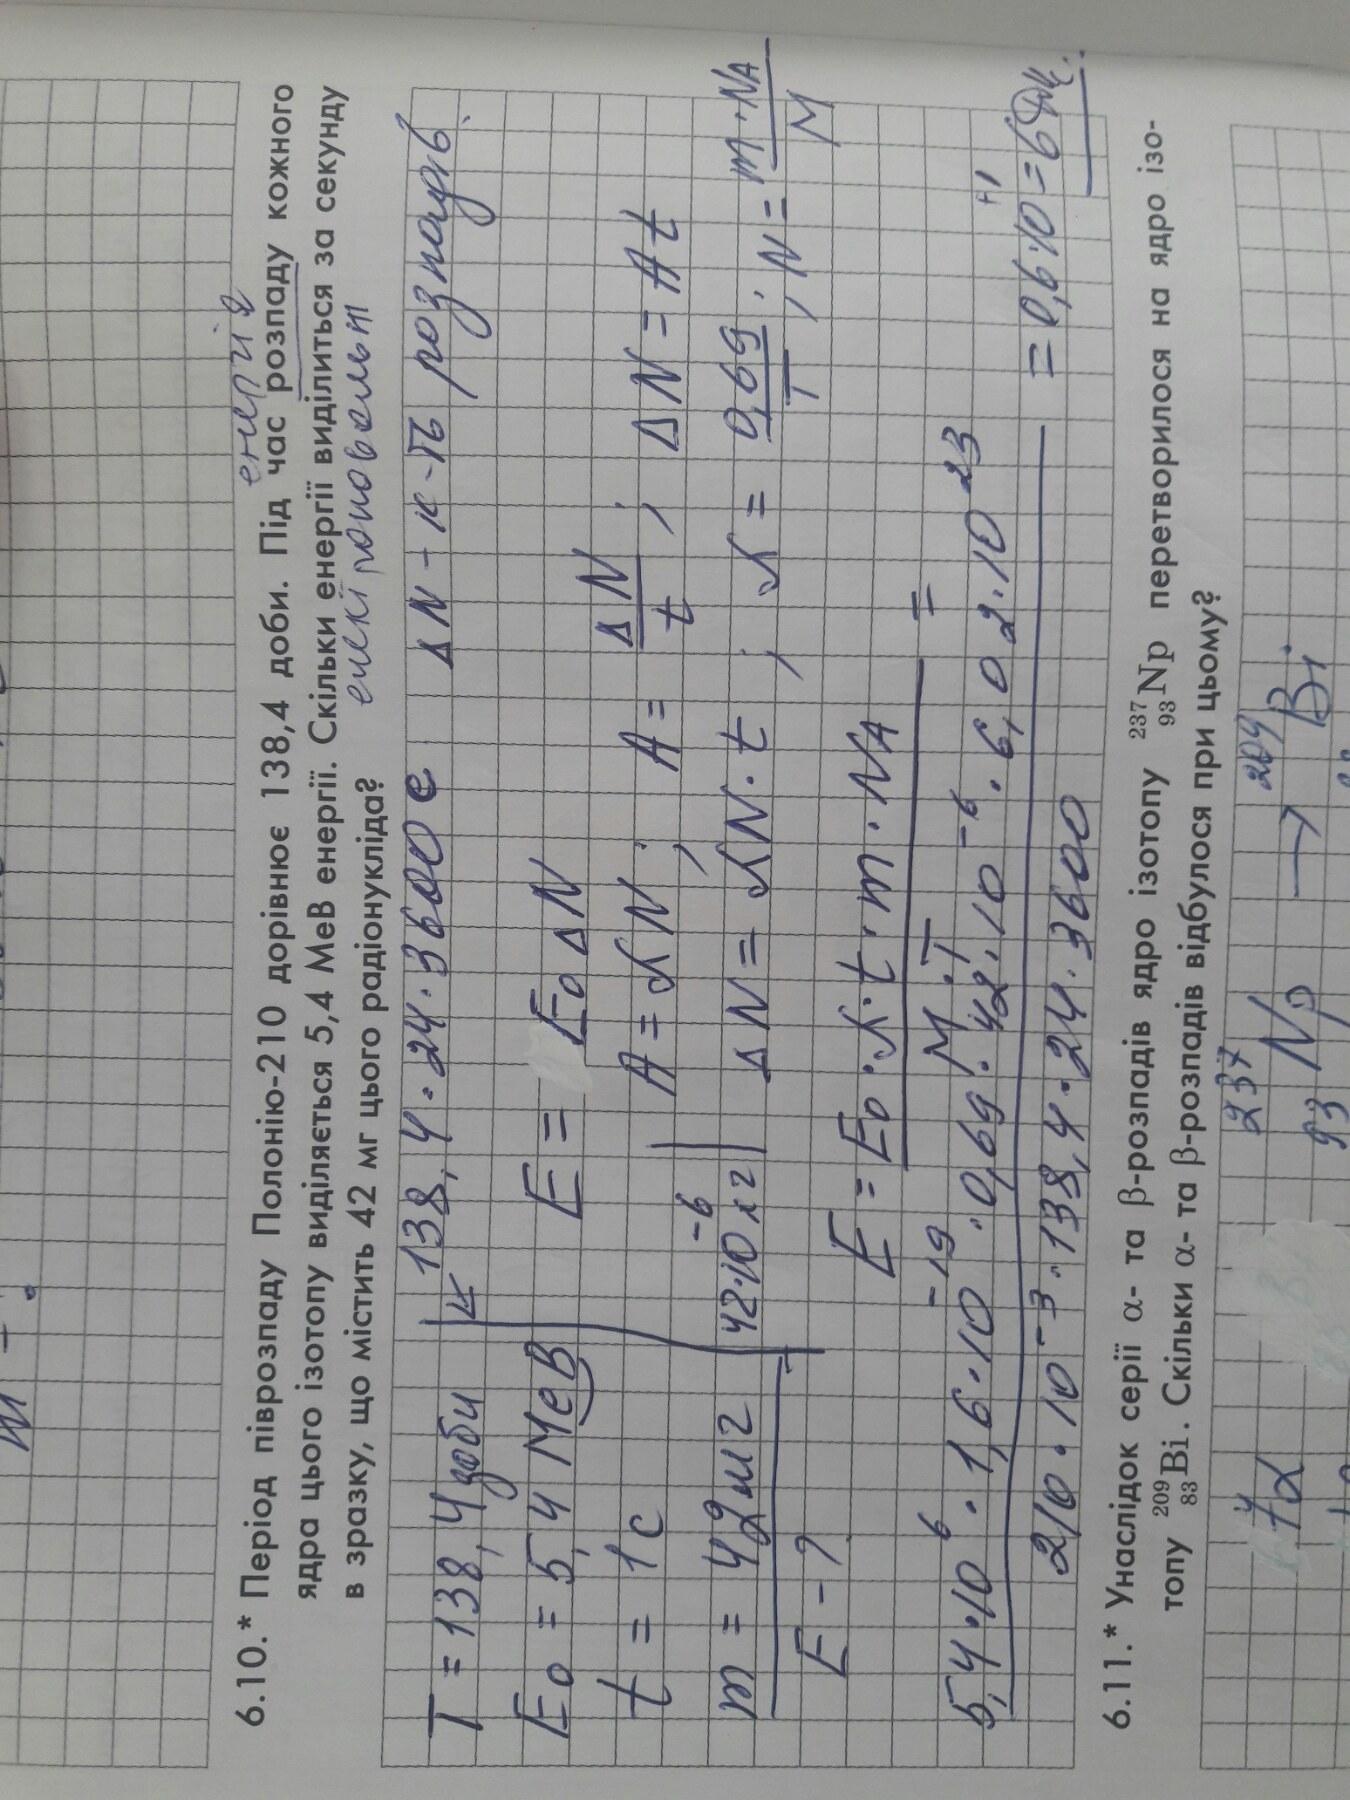 6.10.* Період піврозпаду Полонію-210 дорівнює 138,4 доби. Під час розпаду кожного
енергія
ядра цього ізотопу виділяється 5,4 МеВ енергії. Скільки енергії виділиться за секунду
в зразку, що містить 42 мг цього радіонукліда?
T = 138,4 доби
138,4·24·3600 с
ΔN – к-ть розпадів.
E₀ = 5,4 МеВ
E = E₀ΔN
t = 1 c
A = λN; A = ΔN/t; ΔN = At
m = 42 мг
42·10⁻⁶ кг
ΔN = λN·t; λ = 0,69/T; N = m·NA/M
E – ?
E = E₀·λ·t·m·NA/M·T =
5,4·10⁶·1,6·10⁻¹⁹·0,69·42·10⁻⁶·6,02·10²³
210·10⁻³·138,4·24·3600
= 0,6·10⁺¹ = 6 Дж.
6.11.* Унаслідок серії α- та β-розпадів ядро ізотопу ²³⁷₉₃Np перетворилося на ядро ізо-
топу ²⁰⁹₈₃Bi. Скільки α- та β-розпадів відбулося при цьому?
²³⁷₉₃Np → ²⁰⁹Bi